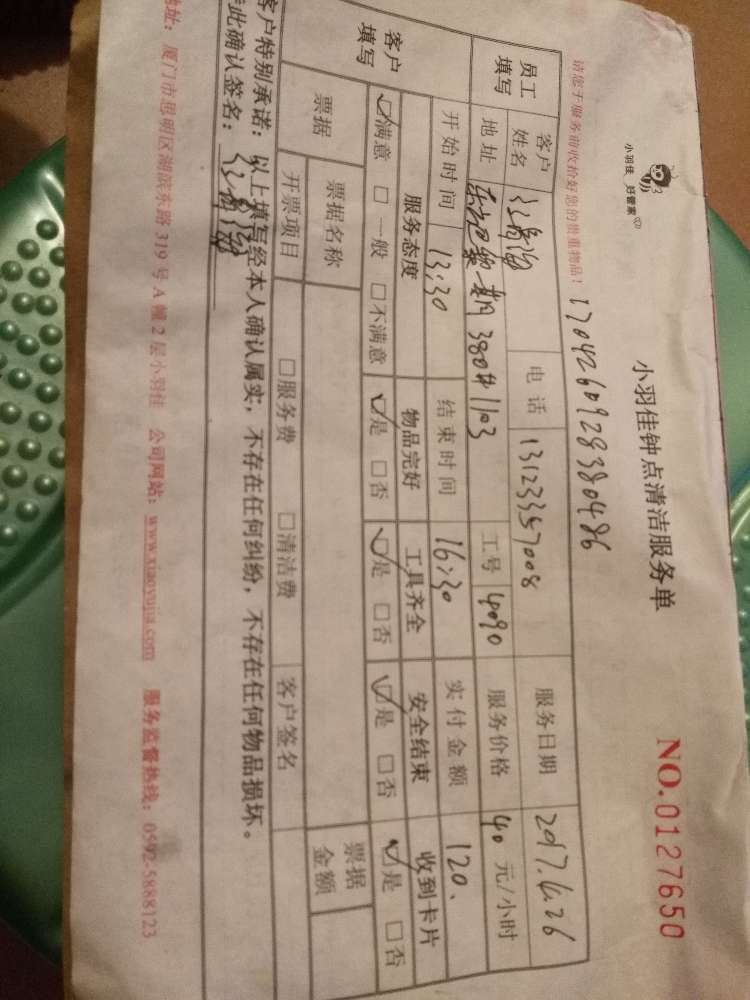 小羽佳 好管家
小羽佳钟点清洁服务单
NO.0127650
请您于服务前收拾好您的贵重物品！
17042609283380486
员工填写 客户姓名 电话 13123357008 服务日期 2017.4.26
地址 380# 1103 工号 4090 服务价格 40 元/小时
客户填写 开始时间 13:30 结束时间 16:30 实付金额 120.
服务态度 物品完好 工具齐全 安全结束 收到卡片
☑满意 □一般 □不满意 ☑是 □否 ☑是 □否 ☑是 □否 ☑是 □否
票据 票据名称 票据金额
开票项目 □服务费 □清洁费 客户签名
客户特别承诺：以上填写经本人确认属实，不存在任何纠纷，不存在任何物品损坏。
此确认签名：
地址：厦门市思明区湖滨东路319号A幢2层小羽佳 公司网站：www.xiaoyujia.com 服务监督热线：0592-5888123